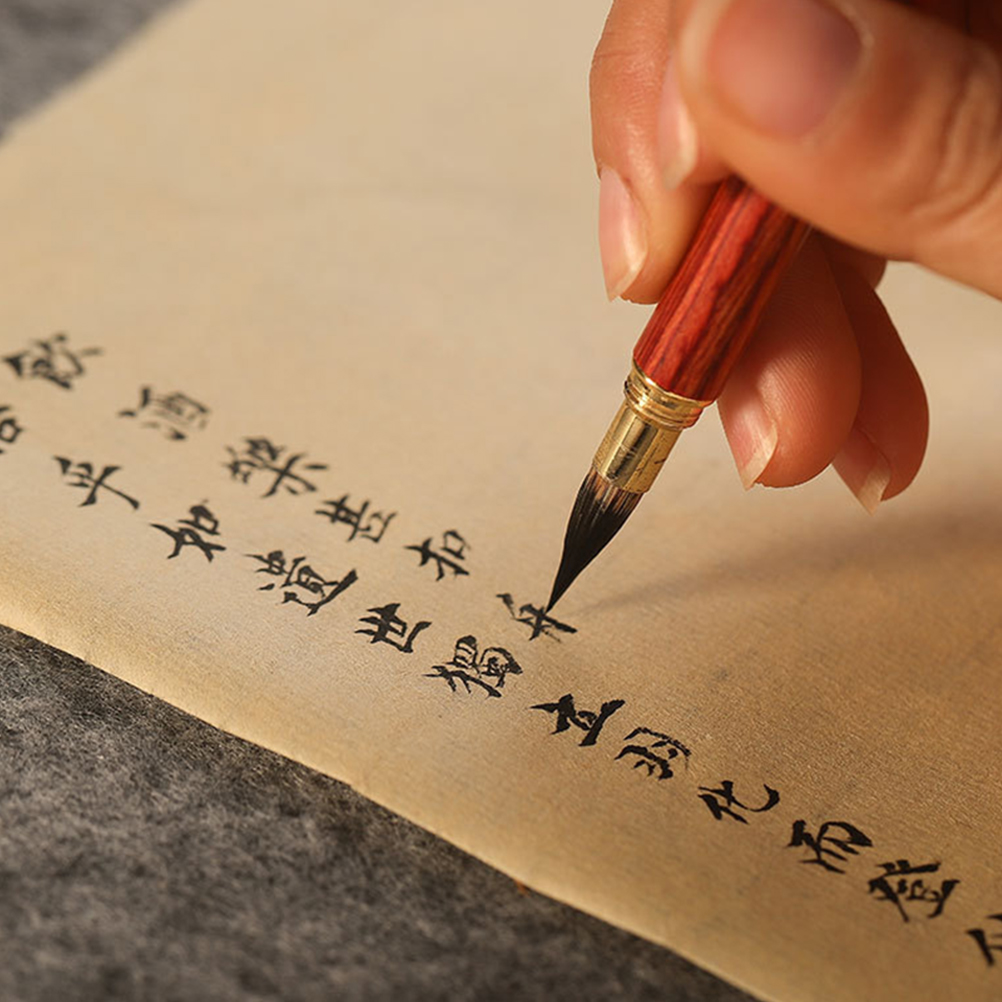 飲酒樂甚扣
乎如遺世獨立羽化而登